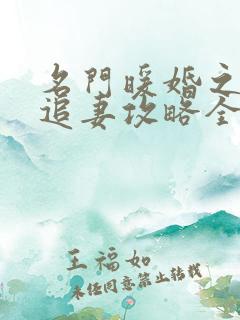 名門暖婚之
追妻攻略全
王福如
未经同意禁止转载